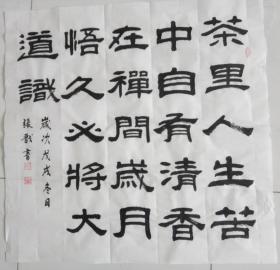 茶里人生苦
中自有清香
在禪間歲月
悟久必將大
道識
歲次戊戌冬日
張戬書